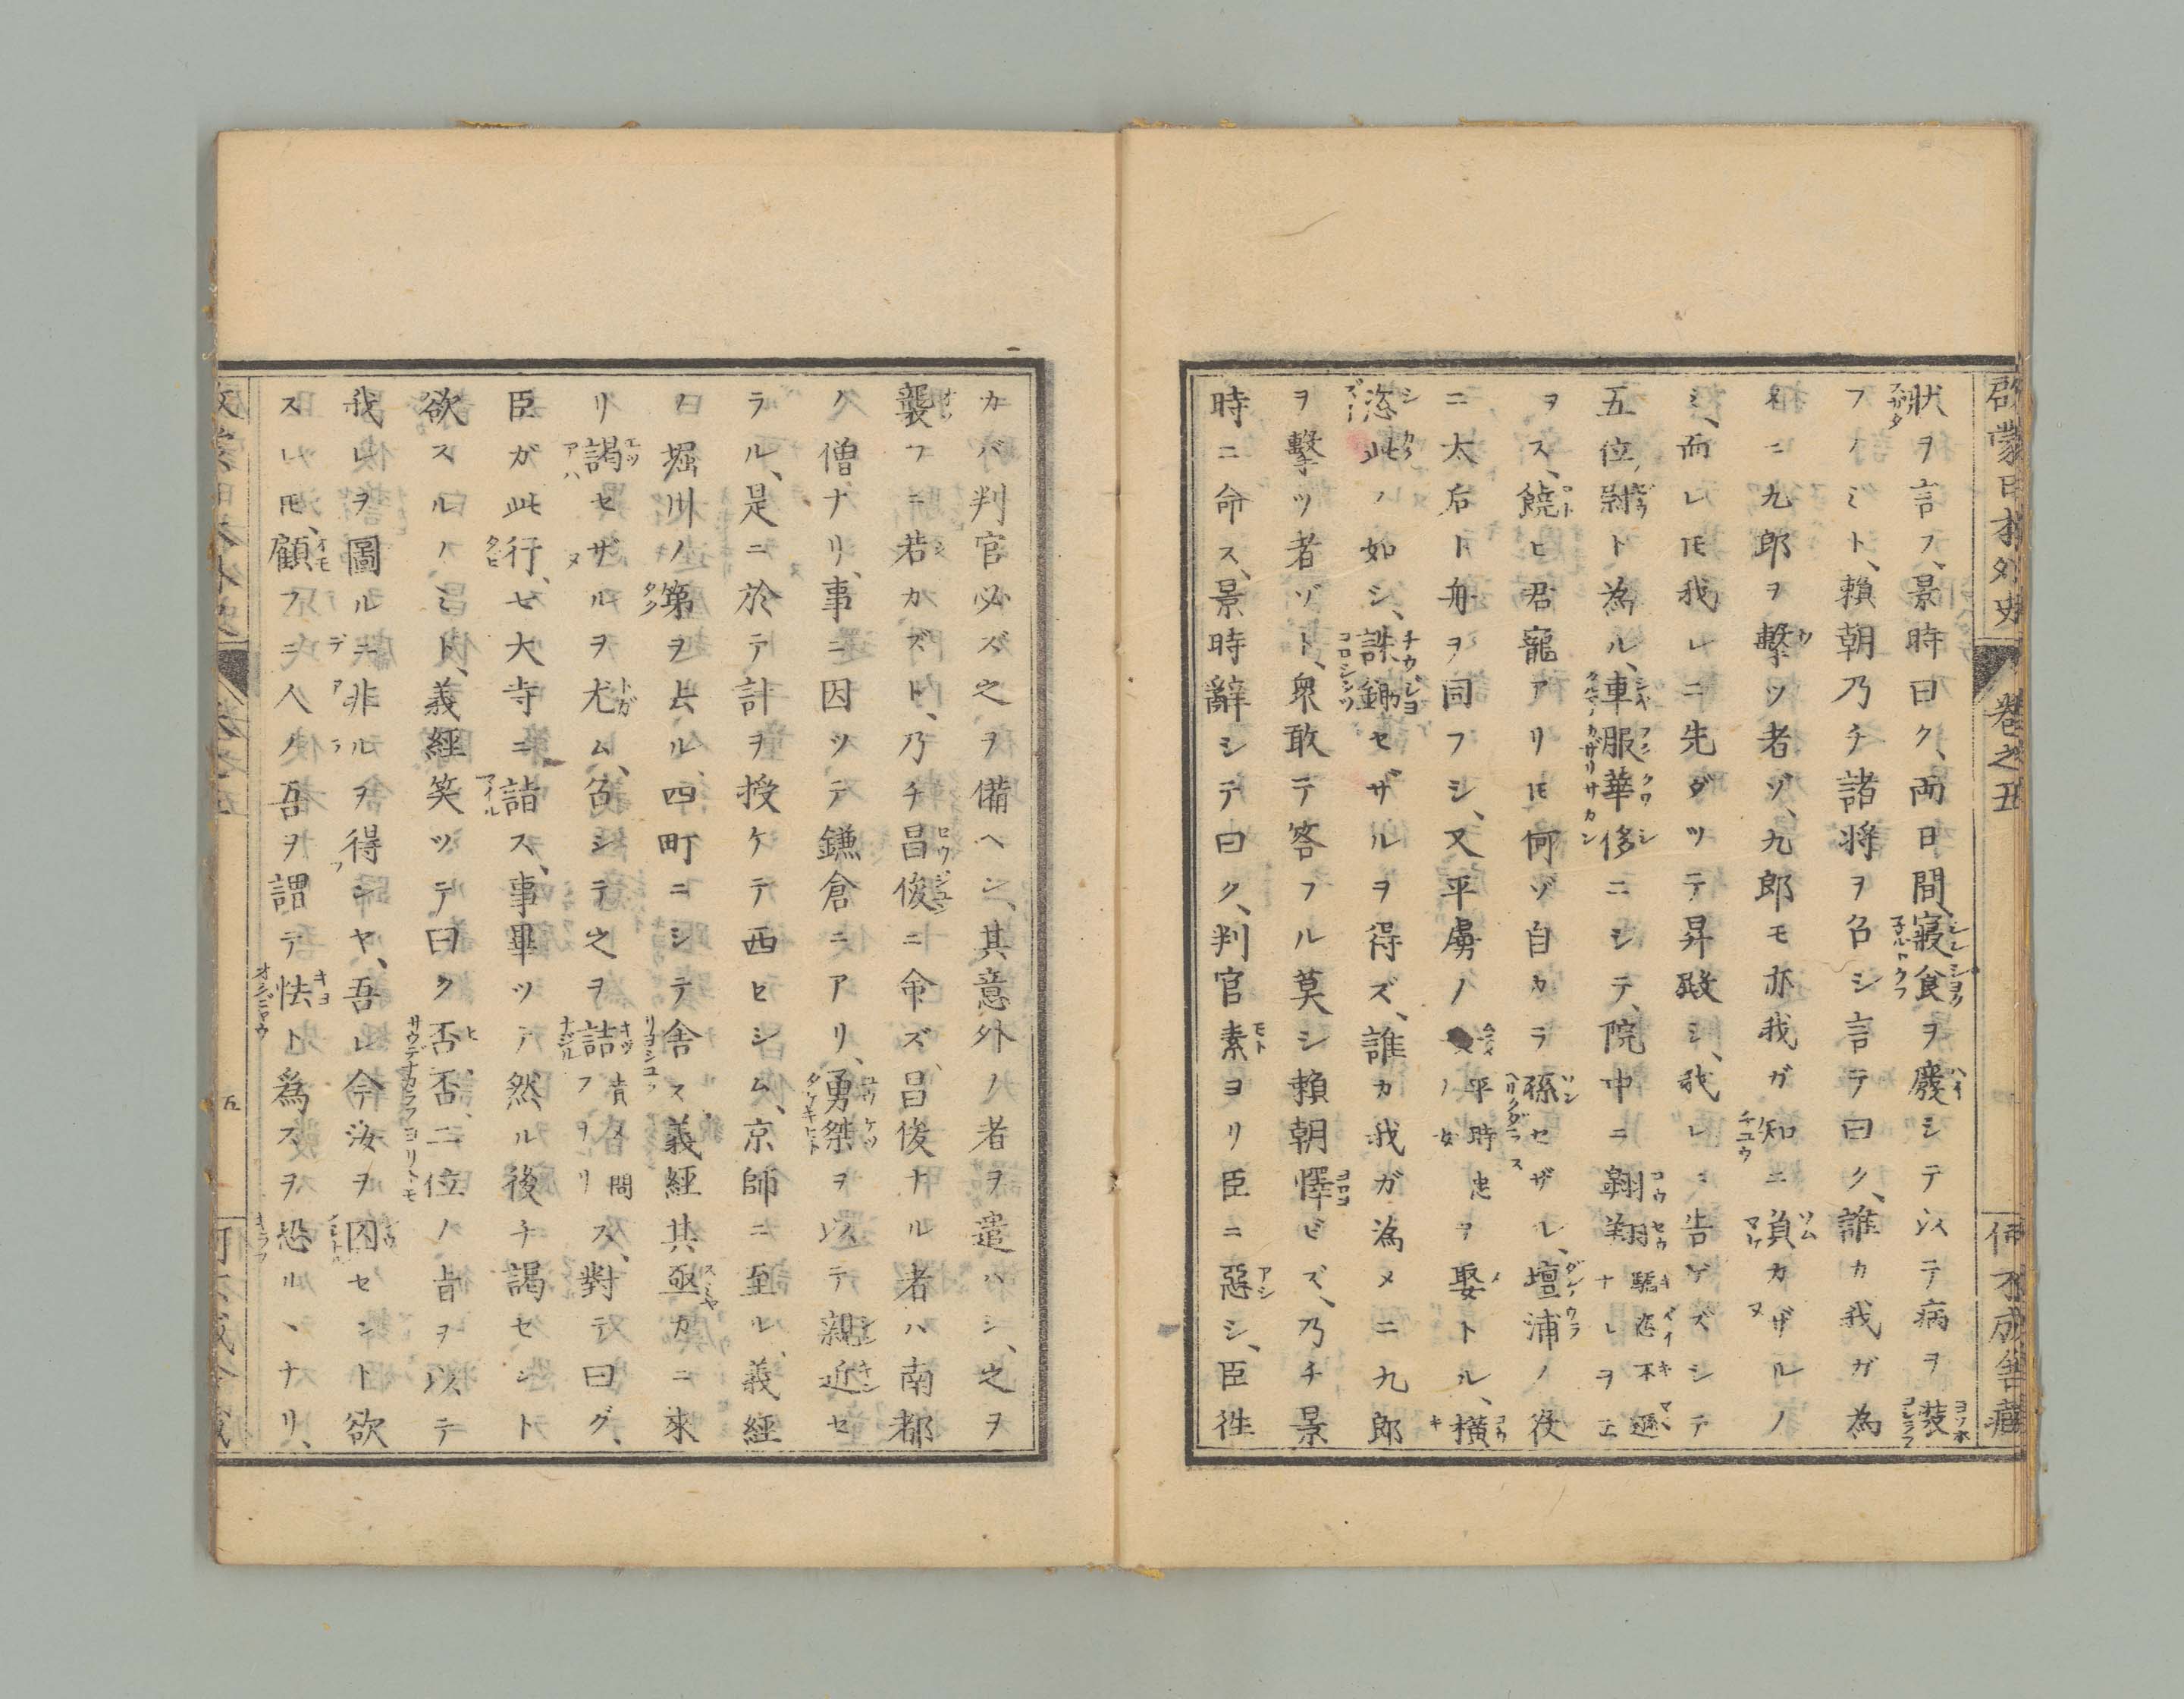 啓蒙日本外史 巻之五 何不成舎蔵
狀ヲ言フ、景時曰ク、両日間、寢食ヲ廢シテ以テ病ヲ裝
フノミト、賴朝乃チ諸將ヲ召シ言テ曰ク、誰カ我ガ為
メニ九郎ヲ擊ツ者ゾ、九郎モ亦我ガ知ニ負カザルノ
ミ、而レ𪜈我レニ先ダツテ昇殿シ、我レニ告ゲズシテ
五位尉ト為ル、車服華侈ニシテ、院中ニ翺翔ナレヲエ
驕恣不遜
ヲス、饒ヒ君寵アリ𪜈何ゾ自カラ孫セザレ、壇浦ノ役
ニ太后ト舟ヲ同フシ、又平虜ノ女平時忠ノ女ヲ娶トル、橫
恣此ノ如シ、誅鋤セザルヲ得ズ、誰カ我ガ為メニ九郎
ヲ擊ツ者ゾト、衆敢テ答フル莫シ賴朝懌ビズ、乃チ景
時ニ命ス、景時辭シテ曰ク、判官素ヨリ臣ニ惡シ、臣徃
カバ判官必ズ之ヲ備ヘン、其意外ノ者ヲ遣ハシ、之ヲ
襲フニ若カズト、乃チ昌俊ニ命ズ、昌俊ナル者ハ南都
ノ僧ナリ、事ニ因ツテ鎌倉ニアリ、勇桀ヲ以テ親近セ
ラル、是ニ於テ計ヲ授ケテ西セシム、京師ニ至ル、義經
ノ堀川ノ第ヲ去ル四町ニシテ舍ス、義經其亟カニ來
リ謁セザルヲ尤ム、召シテ之ヲ詰責メ問フヲリス、對テ曰グ、
臣ガ此行、七大寺ニ詣ス、事畢ツテ然ル後チ謁セント
欲スルノミト、義經笑ツテ曰ク否否、二位ノ旨ヲ以テ
我レヲ圖ルニ非ルヲ得ンヤ、吾レ今汝ヲ囚セント欲
スレ𪜈、顧フニ人ノ吾ヲ謂テ怯ト爲スヲ恐ルヽナリ、
五